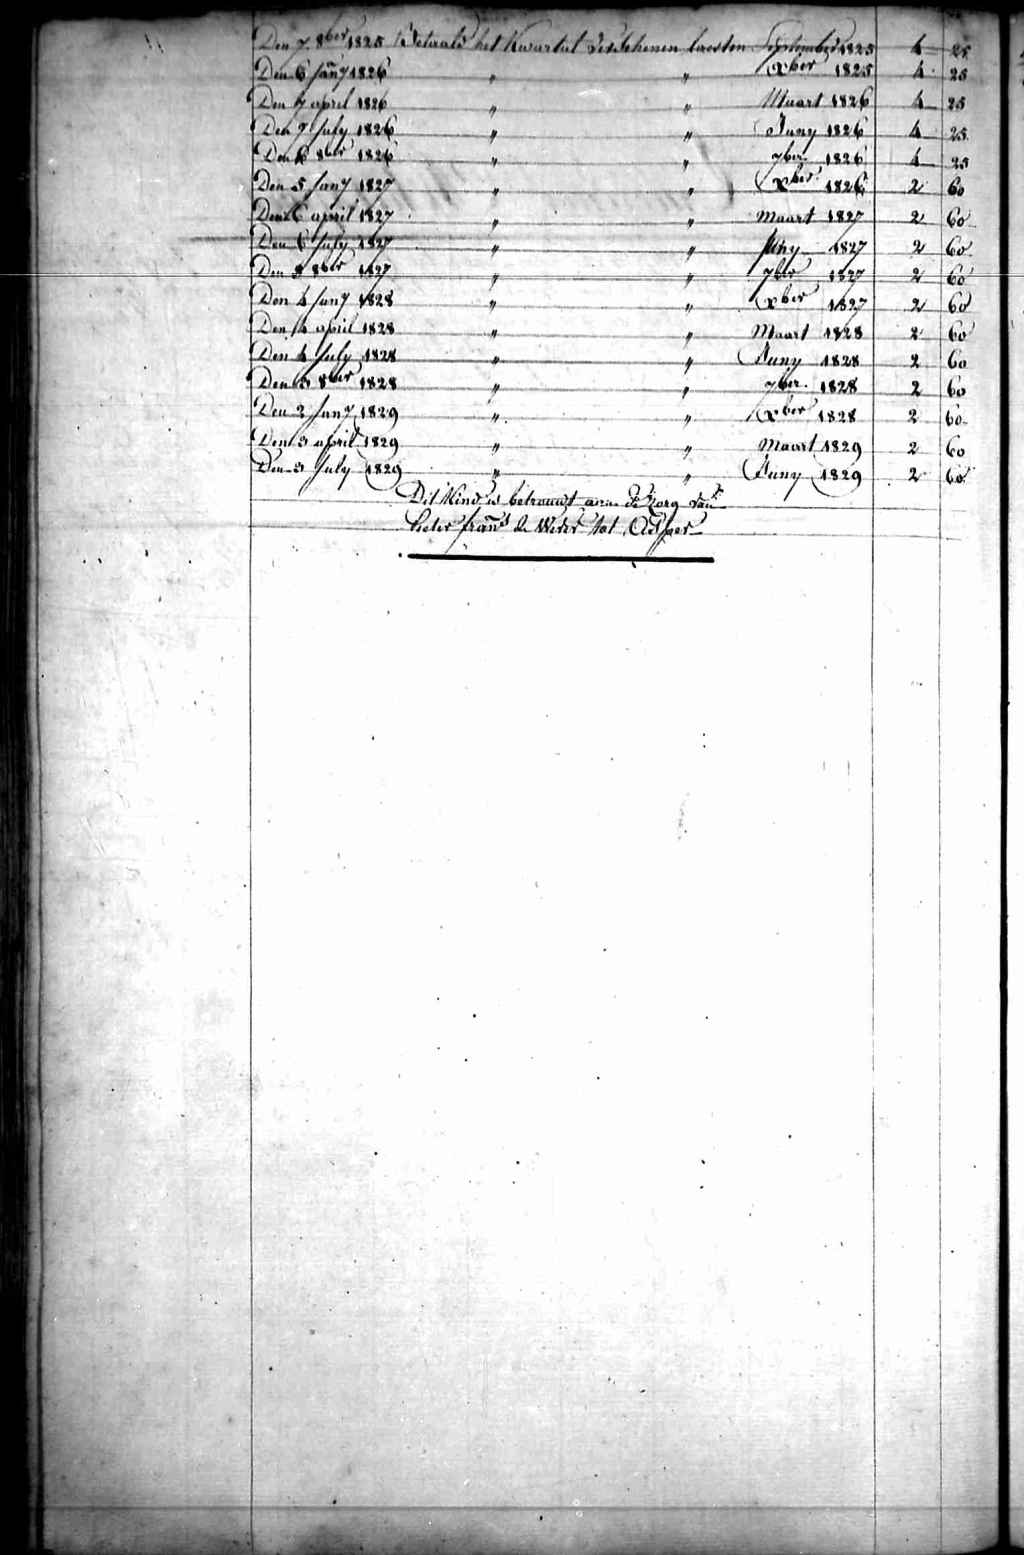 Den 7 8ber 1825 Betaald het Kwartal verschenen laesten September 1825 4 25
Den 6 Jany 1826 " " Xber 1825 4 25
Den 7 april 1826 " " Maart 1826 4 25
Den 7 July 1826 " " Juny 1826 4 25
Den 6 8ber 1826 " " 7ber 1826 4 25
Den 5 Jany 1827 " " Xber 1826 2 60
Den 6 april 1827 " " Maart 1827 2 60
Den 6 July 1827 " " Juny 1827 2 60
Den 5 8ber 1827 " " 7ber 1827 2 60
Den 4 Jany 1828 " " Xber 1827 2 60
Den 4 april 1828 " " Maart 1828 2 60
Den 4 July 1828 " " Juny 1828 2 60
Den 3 8ber 1828 " " 7ber 1828 2 60
Den 2 Jany 1829 " " Xber 1828 2 60
Den 3 april 1829 " " Maart 1829 2 60
Den 3 July 1829 " " Juny 1829 2 60
Dit Kind is betrouwt aan de Zorg van
Pieter frans de tot